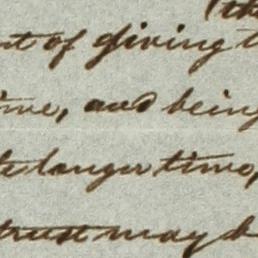 (th
nt of giving t
ime, and being
te longer time,
trust may b